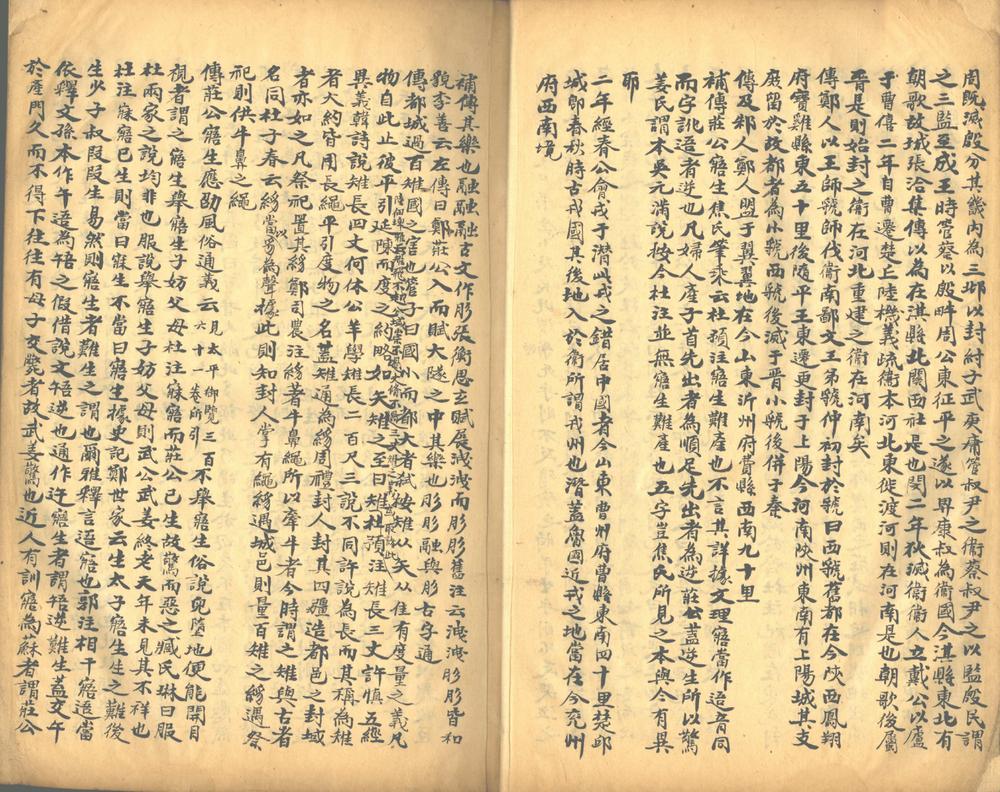 周既滅殷分其畿内為三邶以封紂子武庚庸管叔尹之衞蔡叔尹之以監殷民謂
之三監至成王時管蔡以殷畔周公東征平之遂以畀康叔為衞國今淇縣東北有
朝歌故城張洽集傳以為在淇縣北關西社是也閔二年狄滅衞衞人立戴公以廬
于曹僖二年自曹遷楚丘陸機義疏衞本河北東徙渡河則在河南是也朝歌後屬
晉是則始封之衞在河北重建之衞在河南矣
傳鄭人以王師虢師伐衞南鄙文王弟虢仲初封於虢曰西虢舊都在今陜西鳳翔
府寶雞縣東五十里後隨平王東遷更封于上陽今河南陝州東南有上陽城其支
庶留於故都者為小虢西虢後滅于晋小虢後併于秦
傳及邾人鄭人盟于翼翼地在今山東沂州府費縣西南九十里
補傳莊公寤生焦氏筆乘云杜預注寤生難產也不言其詳據文理寤當作逜音同
而字訛逜者逆也凡婦人產子首先出者為順足先出者為逆莊公蓋逆生所以驚
姜氏謂本吳元滿說按今杜注並無寤生難產也五字豈焦氏所見之本與今有異
耶
二年經春公會戎于潛此戎之錯居中國者今山東曹州府曹縣東南四十里楚邱
城即春秋時古戎國其後地入於衞所謂戎州也潛蓋魯國近戎之地當在今兗州
府西南境
補傳其樂也融融融古文作肜張衡思玄賦展洩洩而肜肜舊注云洩洩肜肜皆和
貌李善云左傳曰鄭莊公入而賦大隧之中其樂也肜肜融與肜古字通
傳都城過百雉國之害也管子曰國小而都大者弒按雉以矢从隹有度量之義凡
物自此止彼平引延陳而度之約略如矢雉之至曰雉杜預注雉長三丈許慎五經
異義韓詩說雉長四丈何休公羊學雉長二百尺三說不同許說為長而其稱為雉
者大約皆用長繩平引度物之名蓋雉通為絼周禮封人封其四疆造都邑之封域
者亦如之凡祭祀置其絼鄭司農注絼著牛鼻繩所以牽牛者今時謂之雉與古者
名同杜子春云絼當以豸為聲據此則知封人掌有繩絼遇城邑則量百雉之絼遇祭
祀則供牛鼻之繩
傳莊公寤生應劭風俗通義云見太平御覽三百六十一卷所引不舉寤生俗說兒墮地便能開目
視者謂之寤生舉寤生子妨父母杜注寤寐而莊公已生故驚而惡之臧氏琳曰服
杜兩家之說均非也服說舉寤生子妨父母則武公武姜終老天年未見其不祥也
杜注寐寤已生則當曰寐生不當曰寤生據史記鄭世家云生太子寤生生之難後
生少子叔段段生易然則寤生者難生之謂也爾雅釋言逜寤也郭注相干寤逜當
依釋文孫本作午逜為牾之假借說文牾逆也通作迕寤生者謂牾逆難生蓋交午
於產門久而不得下往往有母子交斃者故武姜驚也近人有訓寤為蘇者謂莊公